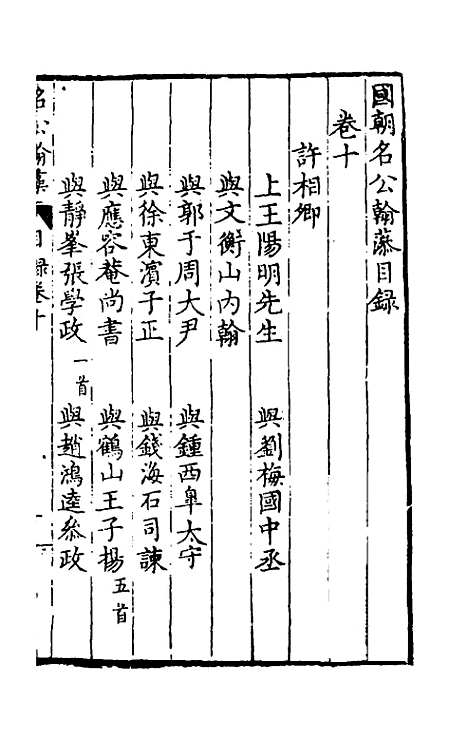 國朝名公翰藻目録
卷十
許相卿
上王陽明先生 與劉梅國中丞
與文衡山內翰
與郭于周大尹 與鍾西臯太守
與徐東濱子正 與錢海石司諫
與應容菴尚書 與鶴山王子揚五首
與靜峯張學政一首 與趙鴻逵叅政
名公翰藻 目録卷十 一